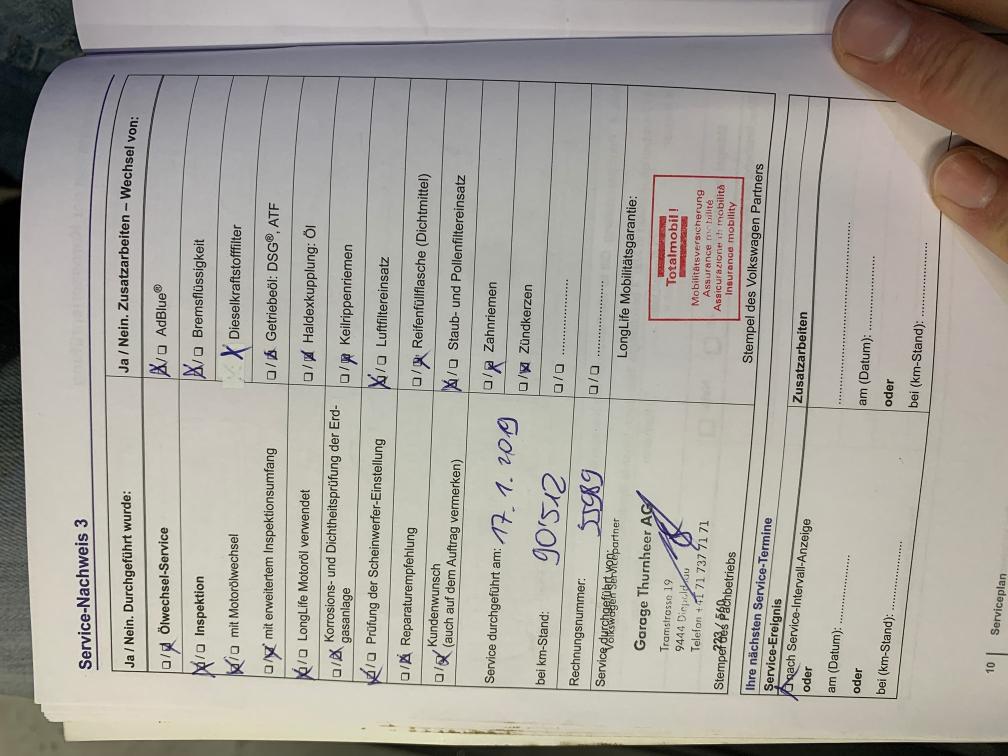 Service-Nachweis 3
Ja / Nein. Durchgeführt wurde:
☐/☒ Ölwechsel-Service
☒/☐ Inspektion
☒/☐ mit Motorölwechsel
☐/☒ mit erweitertem Inspektionsumfang
☒/☐ LongLife Motoröl verwendet
☐/☒ Korrosions- und Dichtheitsprüfung der Erd-
gasanlage
☒/☐ Prüfung der Scheinwerfer-Einstellung
☐/☒ Reparaturempfehlung
☐/☒ Kundenwunsch
(auch auf dem Auftrag vermerken)
Service durchgeführt am: 17. 1. 2019
bei km-Stand: 90'512
Rechnungsnummer: 55989
Service durchgeführt von:
Volkswagen Servicepartner
Garage Thurnheer AG
Tramstrasse 19
9444 Diepoldsau
Telefon +41 71 737 71 71
Stempel des Fachbetriebs
Ja / Nein. Zusatzarbeiten – Wechsel von:
☒/☐ AdBlue®
☒/☐ Bremsflüssigkeit
☒ Dieselkraftstofffilter
☐/☒ Getriebeöl: DSG®, ATF
☐/☒ Haldexkupplung: Öl
☐/☒ Keilrippenriemen
☒/☐ Luftfiltereinsatz
☐/☒ Reifenfüllflasche (Dichtmittel)
☒/☐ Staub- und Pollenfiltereinsatz
☐/☒ Zahnriemen
☐/☒ Zündkerzen
☐/☐ ....................
☐/☐ ....................
LongLife Mobilitätsgarantie:
Totalmobil!
Mobilitätsversicherung
Assurance mobilité
Assicurazione di mobilità
Insurance mobility
Stempel des Volkswagen Partners
Ihre nächsten Service-Termine
Service-Ereignis
☒ nach Service-Intervall-Anzeige
oder
am (Datum): ....................
oder
bei (km-Stand): ....................
Zusatzarbeiten
....................
am (Datum): ....................
oder
bei (km-Stand): ....................
10 | Serviceplan